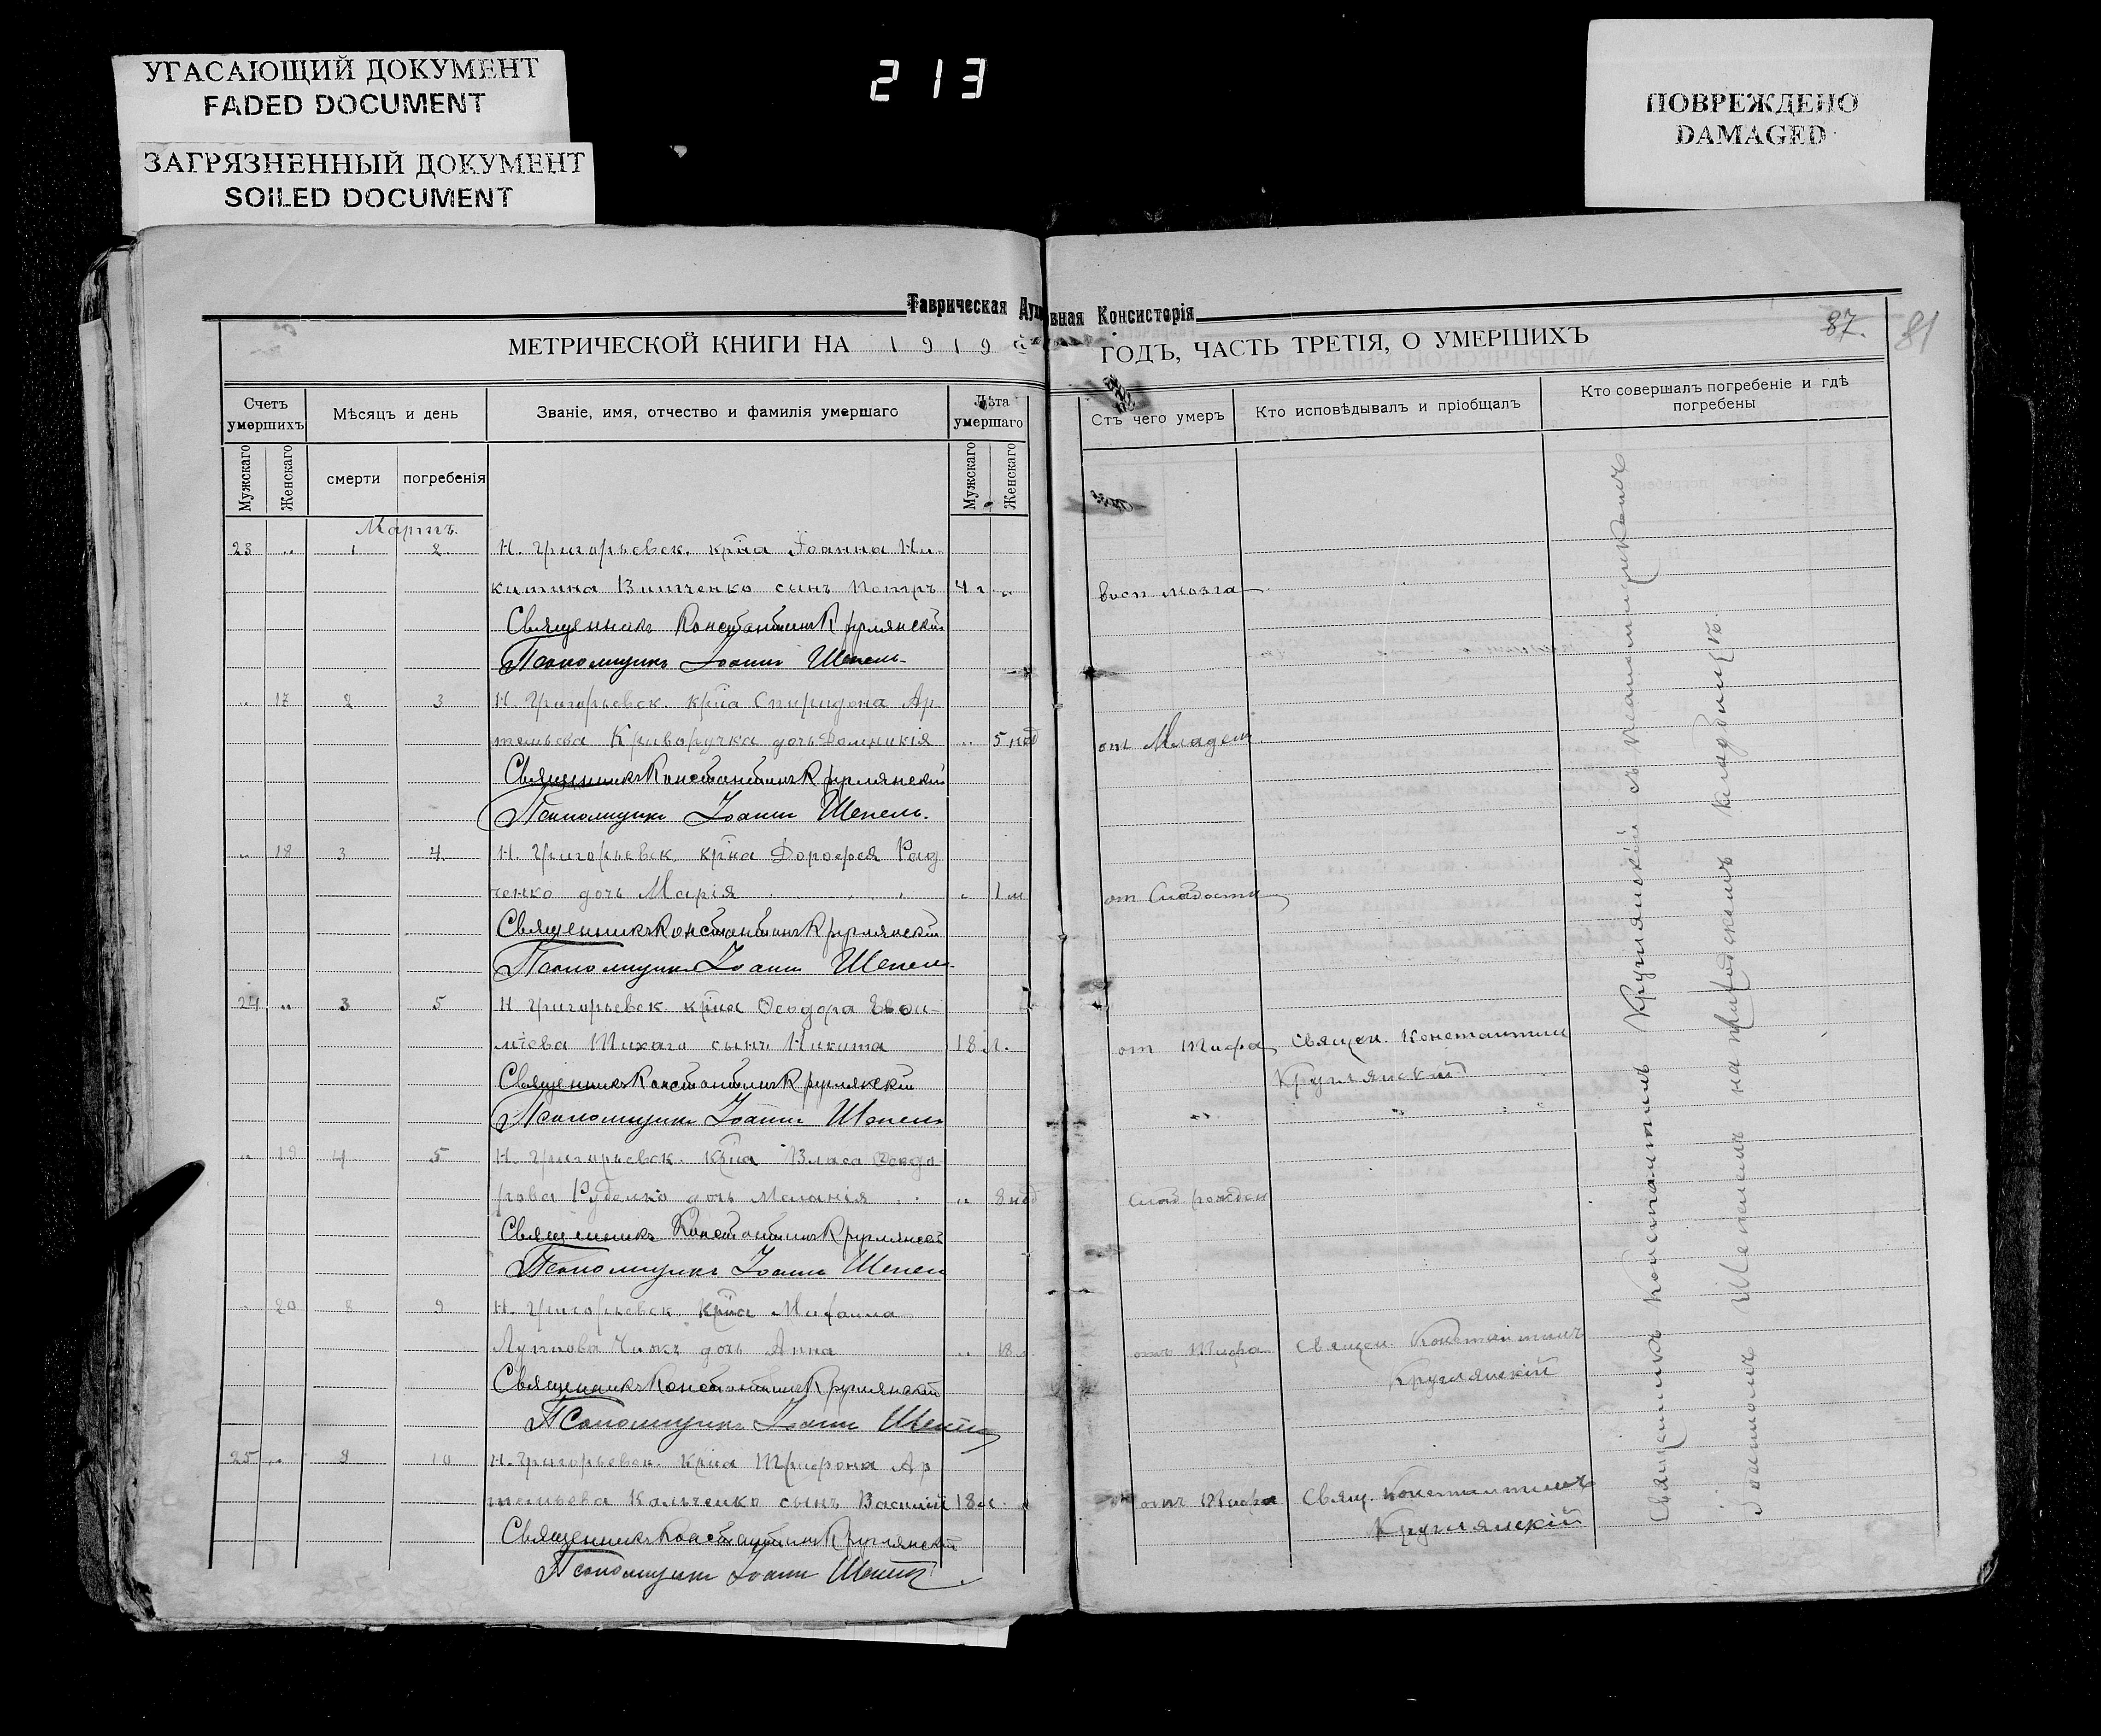 УГАСАЮЩИЙ ДОКУМЕНТ
FADED DOCUMENT
ЗАГРЯЗНЕННЫЙ ДОКУМЕНТ
SOILED DOCUMENT
213
ПОВРЕЖДЕНО
DAMAGED
Таврическая Духовная Консисторія
МЕТРИЧЕСКОЙ КНИГИ НА 1919
ГОДЪ, ЧАСТЬ ТРЕТІЯ, О УМЕРШИХЪ
87.
81
Счетъ умершихъ
Мѣсяцъ и день
Званіе, имя, отчество и фамилія умершаго
Лѣта умершаго
Мужскаго
Женскаго
смерти
погребенія
Мужскаго
Женскаго
Отъ чего умеръ
Кто исповѣдывалъ и пріобщалъ
Кто совершалъ погребеніе и гдѣ погребены
Мартъ.
23 „ 1 2 Н. Григорьевск. кр̃на Іоанна Ни-
китина Витченко сынъ Петръ 4 г. „ восп мозга
Священникъ Константинъ Круглянскій
Псаломщикъ Іоаннъ Шепель
„ 17 2 3 Н. Григорьевск. кр̃на Спиридона Ар
темьева Криворучка дочь Домникія „ 5 нед от Младен.
Священникъ Константинъ Круглянскій
Псаломщикъ Іоаннъ Шепель.
„ 18 3 4 Н. Григорьевск. кр̃на Дорофея Рад
ченко дочь Марія „ 1 м от Слабости
Священникъ Константинъ Круглянскій
Псаломщикъ Іоаннъ Шепель
24 „ 3 5 Н Григорьевск кр̃на Ѳеодора
Тихаго сынъ Никита 18 л. от Тифа Священ. Константин
Круглянскій
Священникъ Константинъ Круглянскій
Псаломщикъ Іоаннъ Шепель
„ 19 4 5 Н. Григорьевск. кр̃на Власа Ѳеодо
рова Руденко дочь Меланія „ 8 нед слаб рожден
Священникъ Константинъ Круглянскій
Псаломщикъ Іоаннъ Шепель
„ 20 8 9 Н. Григорьевск кр̃на Михаила
дочь Анна „ 18 л отъ Тифа Священ. Константинъ
Круглянскій
Священникъ Константинъ Круглянскій
Псаломщикъ Іоаннъ Шепель
25 „ 9 10 Н. Григорьевск. кр̃на Трифона Ар
темьева Кальченко сынъ Василій 18 л. отъ Тифа Свящ. Константинъ
Круглянскій
Священникъ Константинъ Круглянскій
Псаломщикъ Іоаннъ Шепель
Священникъ Константинъ Круглянскій съ псаломщикомъ
Іоанномъ Шепелемъ на приходскомъ кладбищѣ.